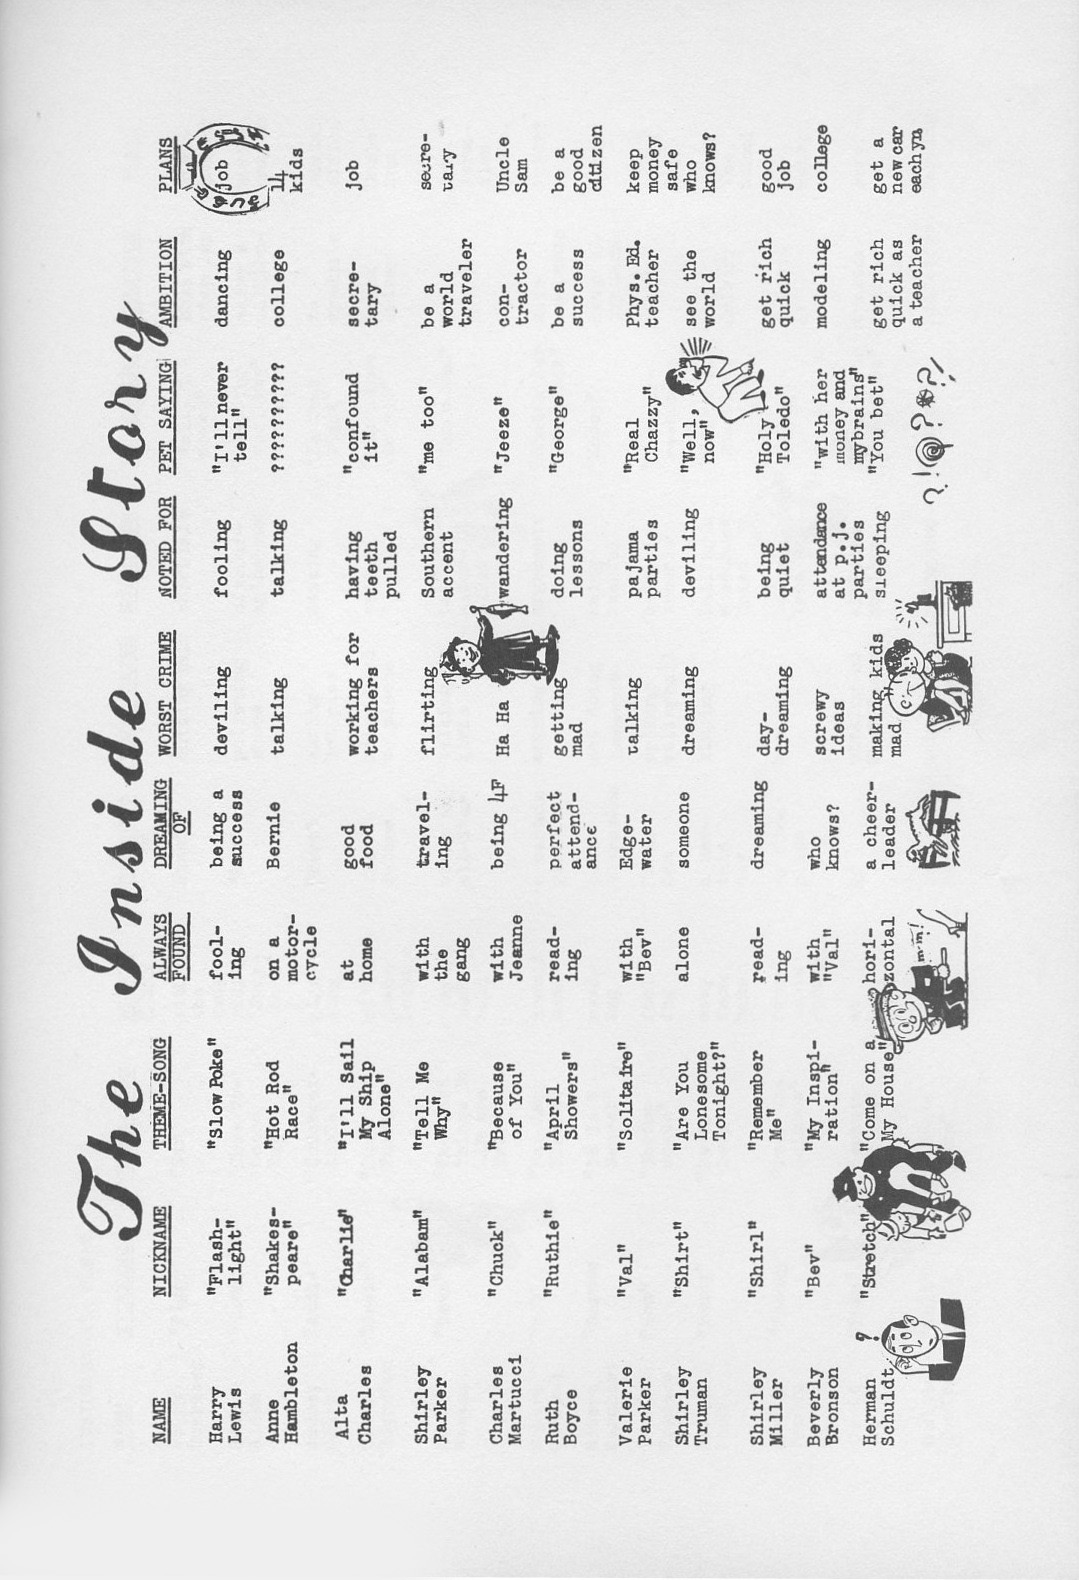 The Inside Story
NAME NICKNAME THEME-SONG ALWAYS DREAMING WORST CRIME NOTED FOR PET SAYING AMBITION PLANS
FOUND OF
Harry "Flash- "Slow Poke" fool- being a deviling fooling "I'll never dancing job
Lewis light" ing success tell"
Anne "Shakes- "Hot Rod on a Bernie talking talking ?????????? college 14
Hambleton peare" Race" motor- kids
cycle
Alta "Charlie" "I'll Sail at good working for having "confound secre- job
Charles My Ship home food teachers teeth it" tary
Alone" pulled
Shirley "Alabam" "Tell Me with travel- flirting Southern "me too" be a secre-
Parker Why" the ing accent world tary
gang traveler
Charles "Chuck" "Because with being 4F Ha Ha wandering "Jeeze" con- Uncle
Martucci of You" Jeanne tractor Sam
Ruth "Ruthie" "April read- perfect getting doing "George" be a be a
Boyce Showers" ing attend- mad lessons success good
ance citizen
Valerie "Val" "Solitaire" with Edge- talking pajama "Real Phys. Ed. keep
Parker "Bev" water parties Chazzy" teacher money
safe
Shirley "Shirt" "Are You alone someone dreaming deviling "Well, see the who
Truman Lonesome now" world knows?
Tonight?"
Shirley "Shirl" "Remember read- dreaming day- being "Holy get rich good
Miller Me" ing dreaming quiet Toledo" quick job
Beverly "Bev" "My Inspi- with who screwy attendance "with her modeling college
Bronson ration" "Val" knows? ideas at p.j. money and
parties my brains"
Herman "Stretch" "Come on a hori- a cheer- making kids sleeping "You bet" get rich get a
Schuldt My House" zontal leader mad quick as new car
a teacher each yn
?
m-m!
?!@?*?!